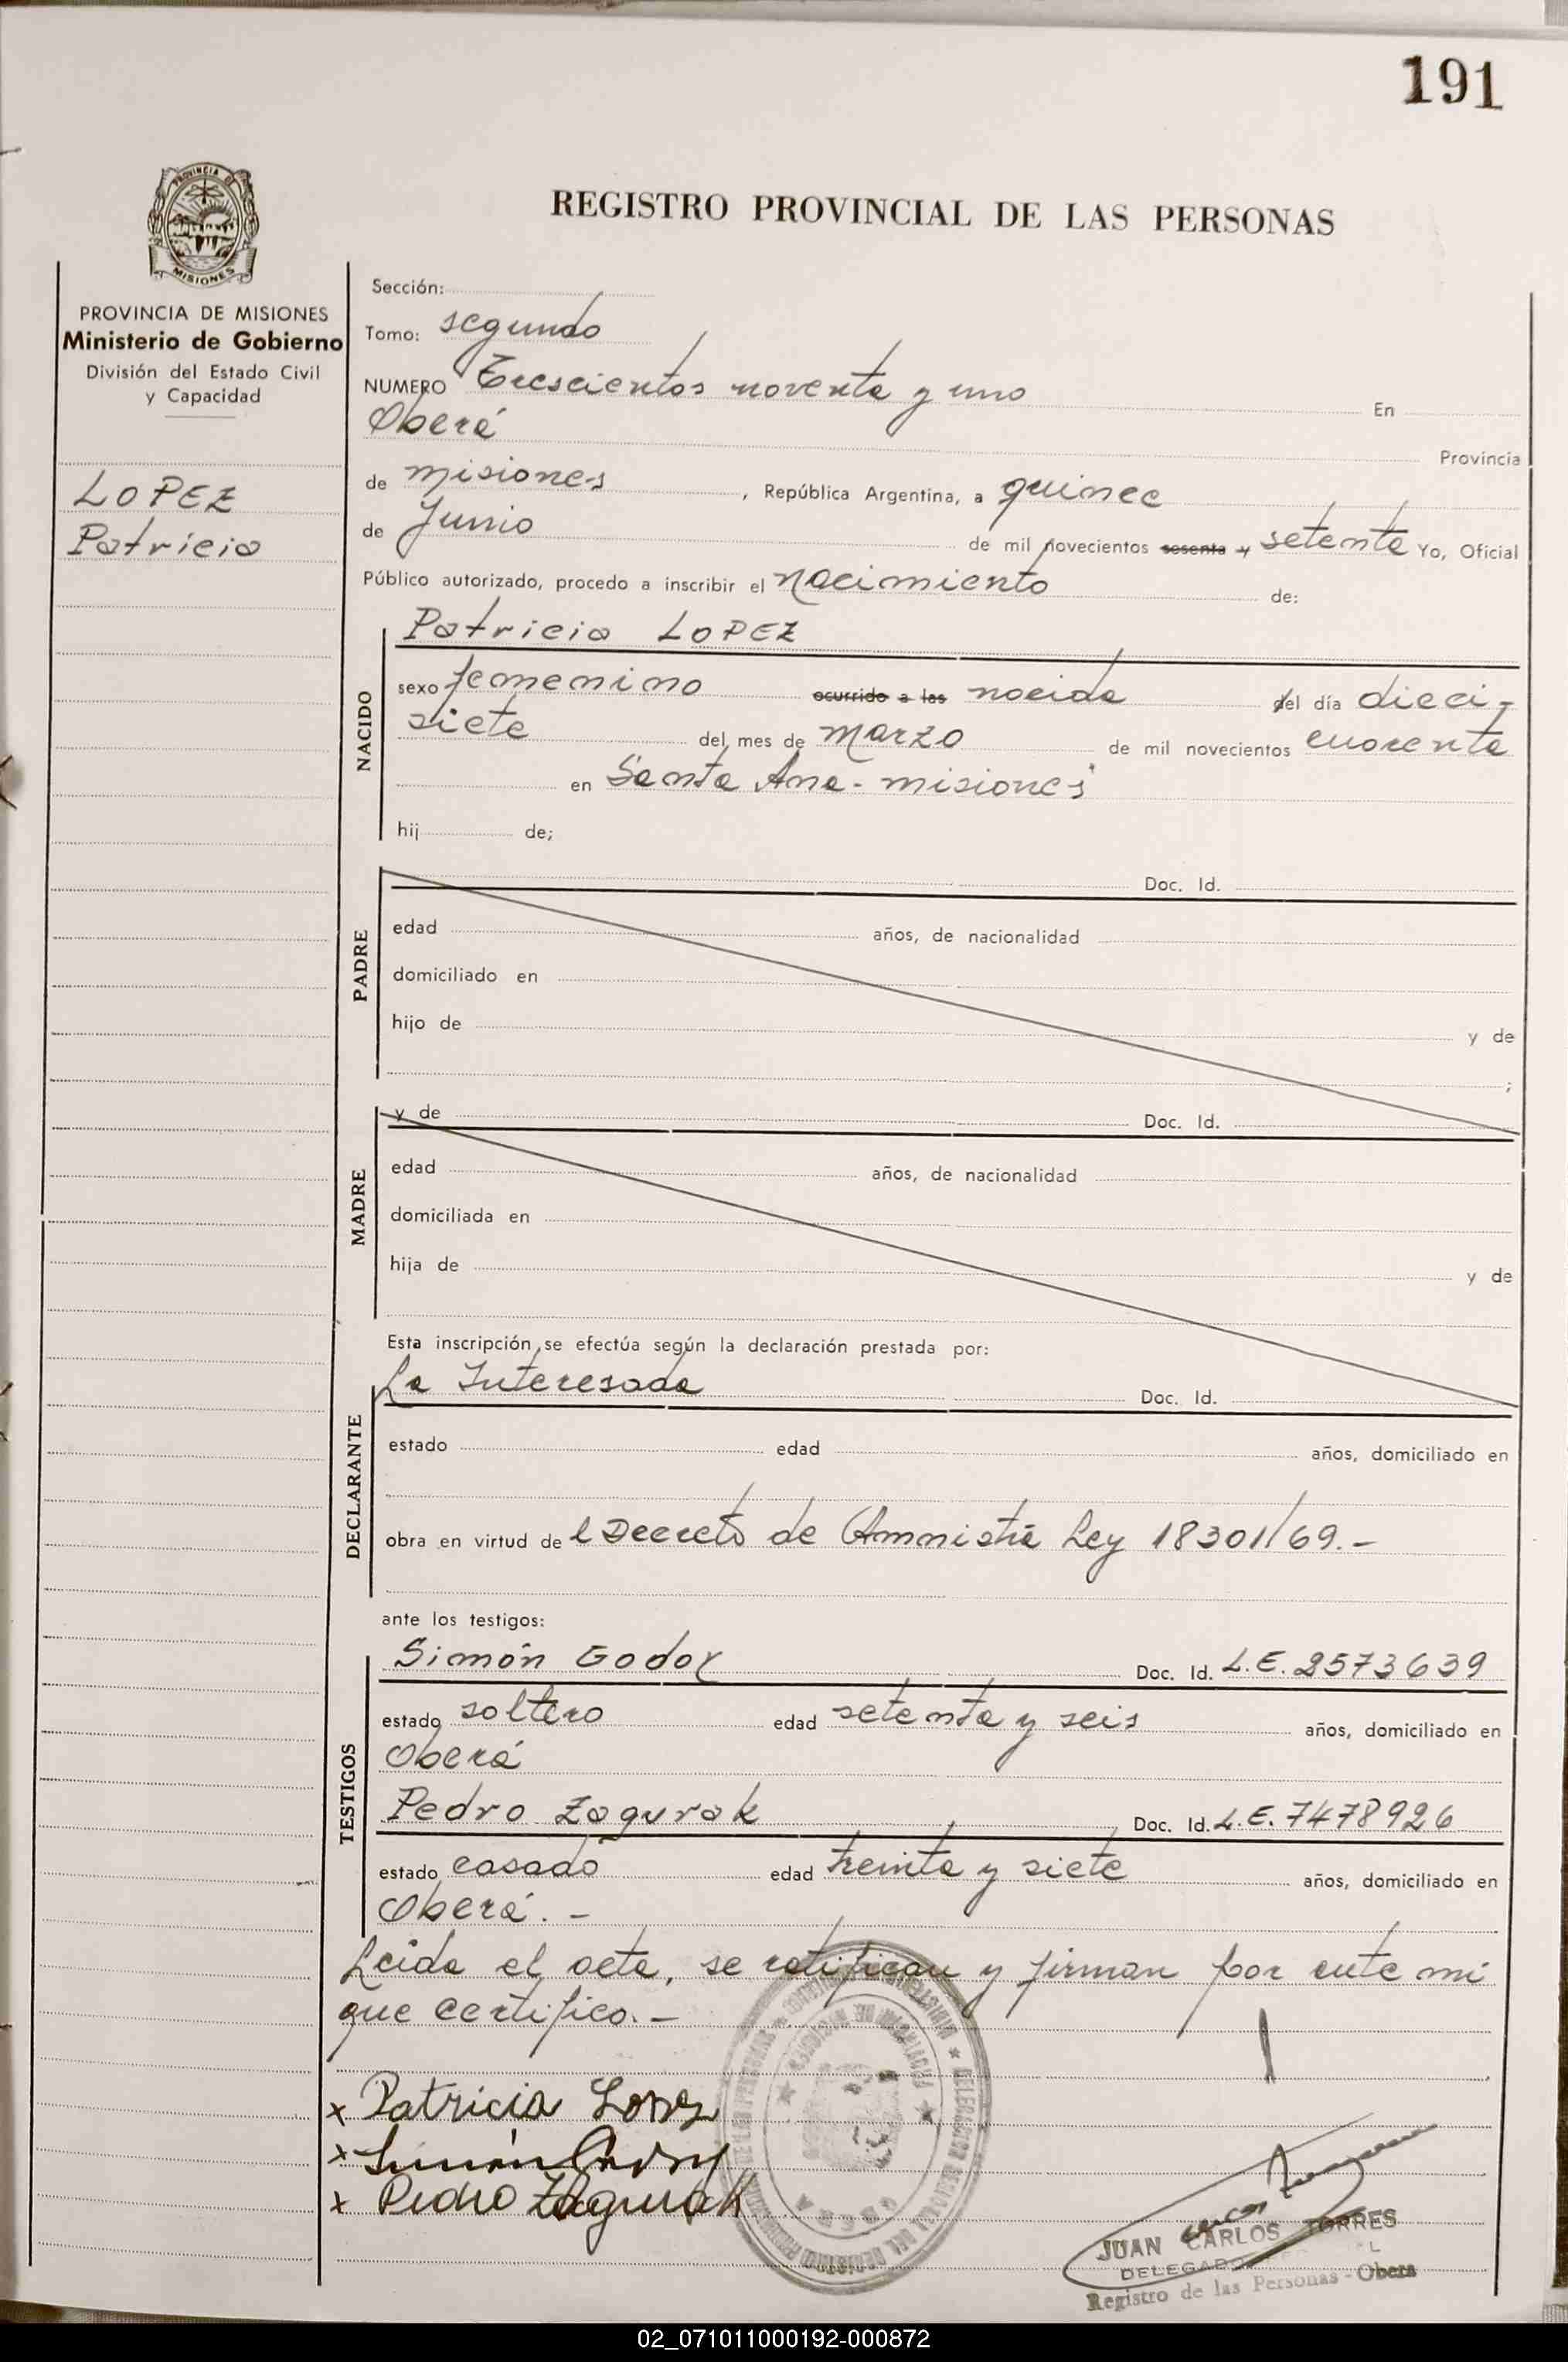 191
PROVINCIA DE
MISIONES
REGISTRO PROVINCIAL DE LAS PERSONAS
PROVINCIA DE MISIONES
Ministerio de Gobierno
División del Estado Civil
y Capacidad
LOPEZ
Patricia
Sección:
Tomo: segundo
NUMERO Trescientos noventa y uno En
Oberá Provincia
de Misiones , República Argentina, a quince
de Junio de mil novecientos sesenta y setenta Yo, Oficial
Público autorizado, procedo a inscribir el nacimiento de:
NACIDO
Patricia LOPEZ
sexo femenino ocurrido a las nacida del día dieci-
siete del mes de Marzo de mil novecientos cuarenta
en Santa Ana - Misiones
hij de;
PADRE
Doc. Id.
edad años, de nacionalidad
domiciliado en
hijo de y de
;
MADRE
y de Doc. Id.
edad años, de nacionalidad
domiciliada en
hija de y de
Esta inscripción se efectúa según la declaración prestada por:
DECLARANTE
La Interesada Doc. Id.
estado edad años, domiciliado en
obra en virtud de l Decreto de Amnistía Ley 18301/69.-
ante los testigos:
TESTIGOS
Simón Godoy Doc. Id. L.E. 2573639
estado soltero edad setenta y seis años, domiciliado en
Oberá
Pedro Zagurak Doc. Id. L.E. 7478926
estado casado edad treinta y siete años, domiciliado en
Oberá. -
Leida el acta, se ratifican y firman por ante mi
que certifico. -
x Patricia Lopez
x Simón Godoy
x Pedro Zagurak
OBERA
JUAN CARLOS TORRES
DELEGADO
Registro de las Personas - Obera
02_071011000192-000872